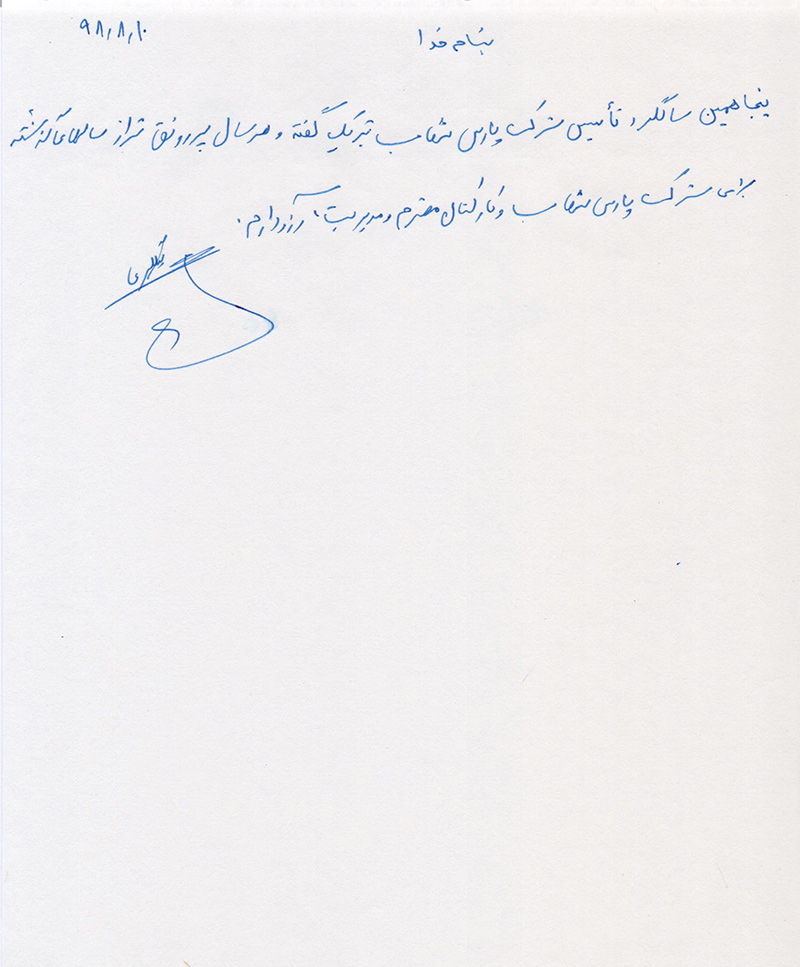 بنام خدا
۹۸٫۸٫۱۰
پنجاهمین سالگرد تأسیس شرکت پارس تبریک گفته و هر سال پر رونق تر از سالهای گذشته
برای شرکت پارس و کارکنان محترم و مدیریت، آرزو دارم.